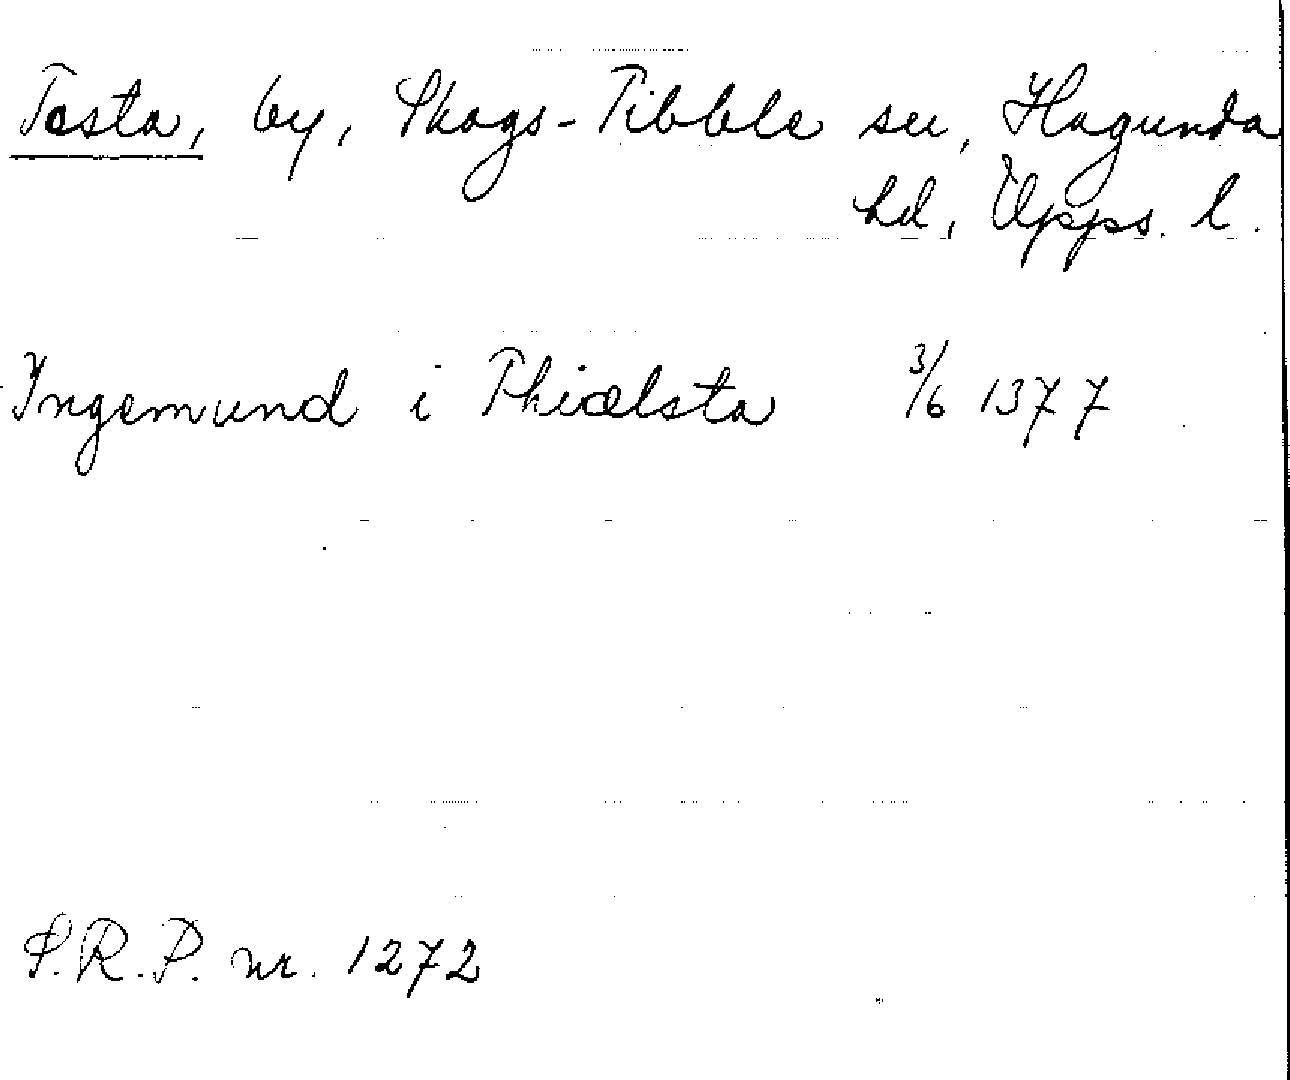 Tosta, by, Skogs-Tibble sn, Hagunda
hd, Upps. l.
Ingemund i Thiælsta 3/6 1377
S.R.P. nr. 1272